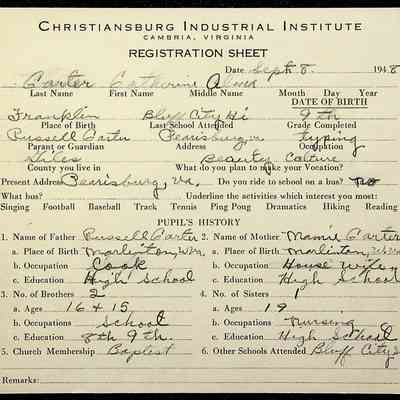 CHRISTIANSBURG INDUSTRIAL INSTITUTE
CAMBRIA, VIRGINIA
REGISTRATION SHEET
Date Sept 8. 1948
Carter Catherine Alma
Last Name First Name Middle Name Month Day Year
DATE OF BIRTH
Franklin Bluff City Hi 9th
Place of Birth Last School Attended Grade Completed
Russell Carter Pearisburg, va typing
Parent or Guardian Address Occupation
Giles Beauty Culture
County you live in What do you plan to make your Vocation?
Present Address Pearisburg, Va. Do you ride to school on a bus? no
What bus? Underline the activities which interest you most:
Singing Football Baseball Track Tennis Ping Pong Dramatics Hiking Reading
PUPIL'S HISTORY
1. Name of Father Russell Carter 2. Name of Mother Mamie Carter
a. Place of Birth Marlinton, W.Va. a. Place of Birth Marlinton, W.Va
b. Occupation Cook b. Occupation House wife
c. Education High School c. Education High School
3. No. of Brothers 2 4. No. of Sisters 1
a. Ages 16 + 15 a. Ages 19
b. Occupations School b. Occupations Nursing
c. Education 8th 9th. c. Education High School
5. Church Membership Baptist 6. Other Schools Attended Bluff City
Remarks: